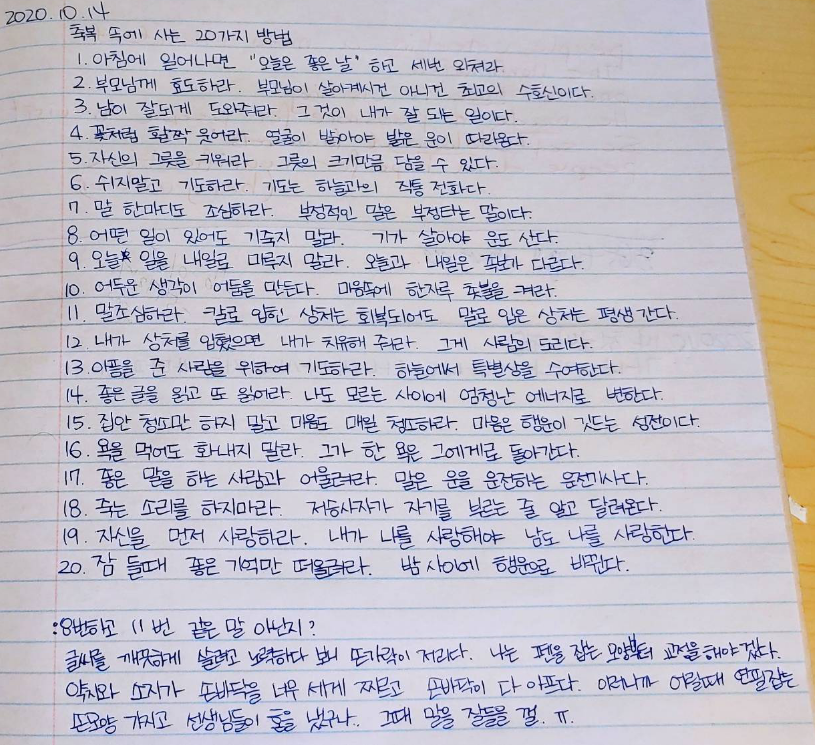 2020.10.14
축복 속에 사는 20가지 방법
1. 아침에 일어나면 "오늘은 좋은 날" 하고 세번 외쳐라.
2. 부모님께 효도하라. 부모님이 살아계시건 아니건 최고의 수호신이다.
3. 남이 잘되게 도와줘라. 그것이 내가 잘 되는 일이다.
4. 꽃처럼 활짝 웃어라. 얼굴이 밝아야 밝은 운이 따라온다.
5. 자신의 그릇을 키워라. 그릇의 크기만큼 담을 수 있다.
6. 쉬지말고 기도하라. 기도는 하늘과의 직통 전화다.
7. 말 한마디도 조심하라. 부정적인 말은 부정타는 말이다.
8. 어떤 일이 있어도 기죽지 말라. 기가 살아야 운도 산다.
9. 오늘 일을 내일로 미루지 말라. 오늘과 내일은 족보가 다르다.
10. 어두운 생각이 어둠을 만든다. 마음속에 한자루 촛불을 켜라.
11. 말조심하라. 칼로 입힌 상처는 회복되어도 말로 입은 상처는 평생 간다.
12. 내가 상처를 입혔으면 내가 치유해 줘라. 그게 사람의 도리다.
13. 아픔을 준 사람을 위하여 기도하라. 하늘에서 특별상을 수여한다.
14. 좋은 글을 읽고 또 읽어라. 나도 모르는 사이에 엄청난 에너지로 변한다.
15. 집안 청소만 하지 말고 마음도 매일 청소하라. 마음은 행운이 깃드는 성전이다.
16. 욕을 먹어도 화내지 말라. 그가 한 욕은 그에게로 돌아간다.
17. 좋은 말을 하는 사람과 어울려라. 말은 운을 운전하는 운전기사다.
18. 죽는 소리를 하지마라. 저승사자가 자기를 부르는 줄 알고 달려온다.
19. 자신을 먼저 사랑하라. 내가 나를 사랑해야 남도 나를 사랑한다.
20. 잠 들때 좋은 기억만 떠올려라. 밤 사이에 행운으로 바뀐다.
:8번하고 11번 같은 말 아닌지?
글씨를 깨끗하게 쓸려고 노력하다 보니 손가락이 저리다. 나는 펜을 잡는 모양부터 교정을 해야겠다.
약지와 소지가 손바닥을 너무 세게 찌르고 손바닥이 다 아프다. 이러니까 어릴때 연필잡는
손모양 가지고 선생님들이 혼을 냈구나. 그때 말을 잘들을 걸. ㅠ.